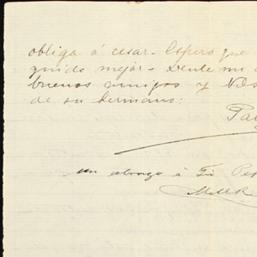 obliga á cesar. Espero que
siga mejor. Dente mi a
buenos amigos y
de su hermano:
Pa
un abrazo á Ti Pe
MMR